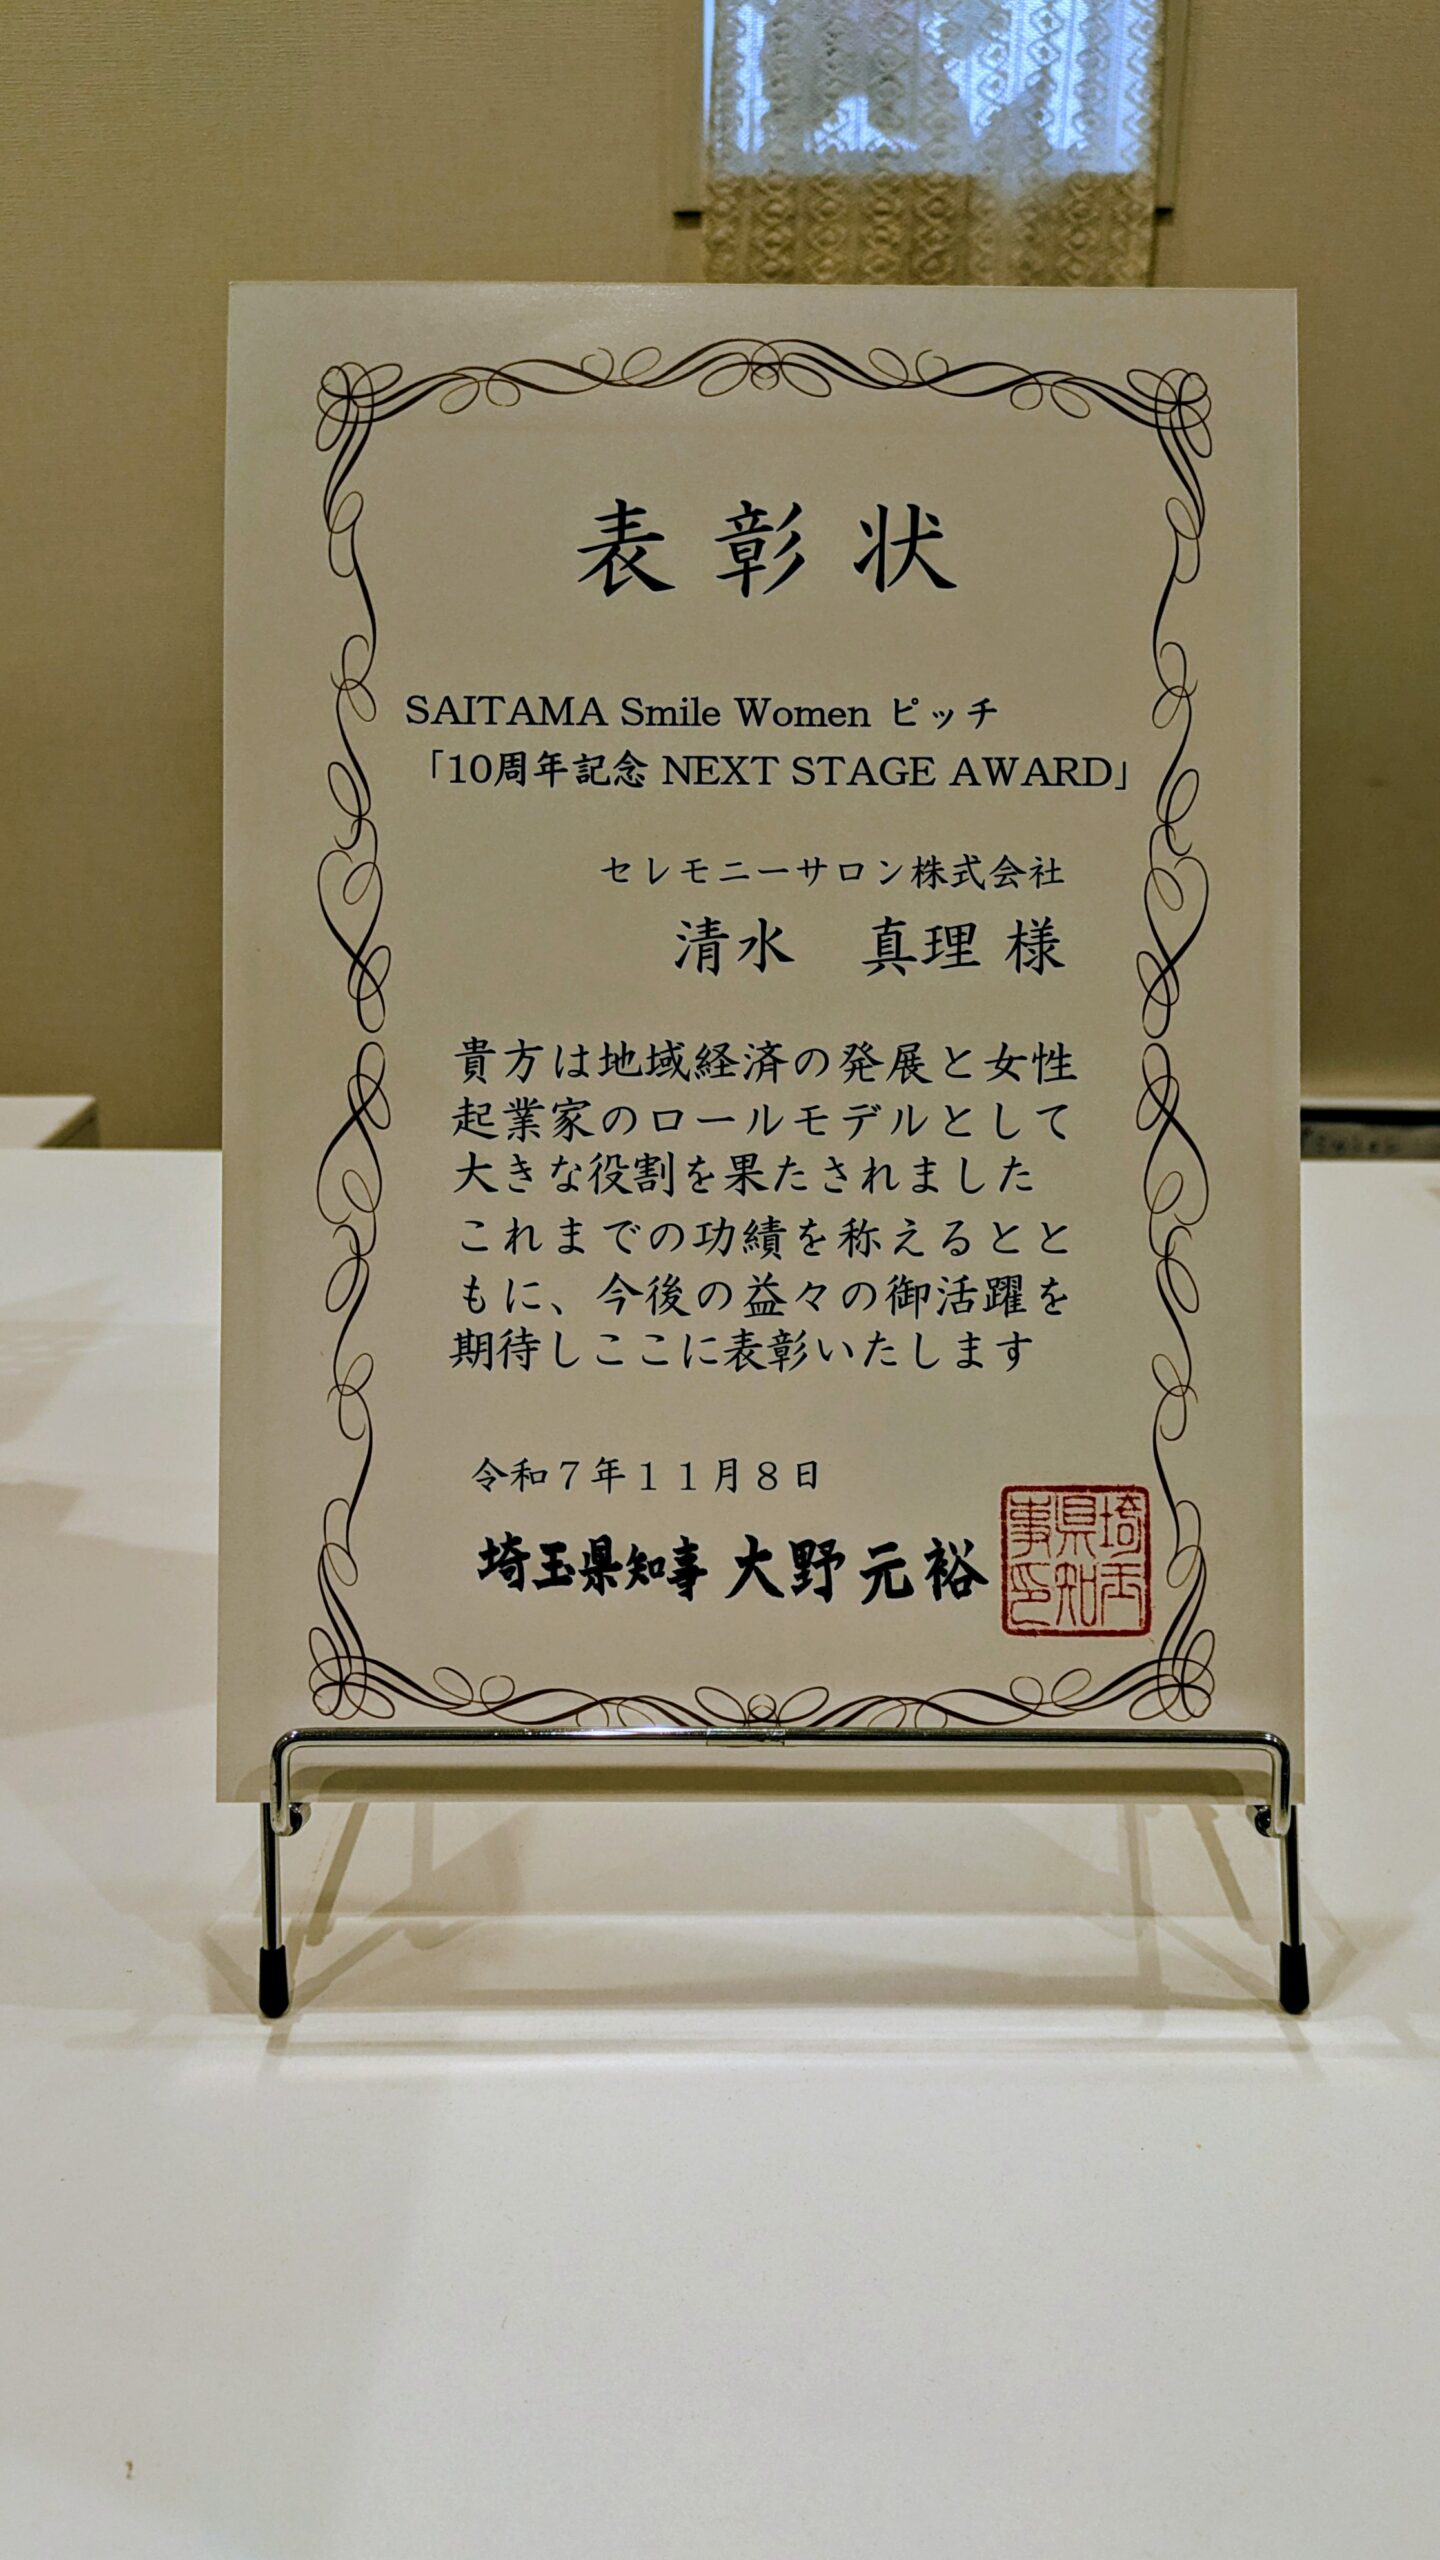 表彰状
SAITAMA Smile Women ピッチ
「10周年記念 NEXT STAGE AWARD」
セレモニーサロン株式会社
清水　真理 様
貴方は地域経済の発展と女性
起業家のロールモデルとして
大きな役割を果たされました
これまでの功績を称えるとと
もに、今後の益々の御活躍を
期待しここに表彰いたします
令和７年１１月８日
埼玉県知事 大野元裕
埼玉県知事印